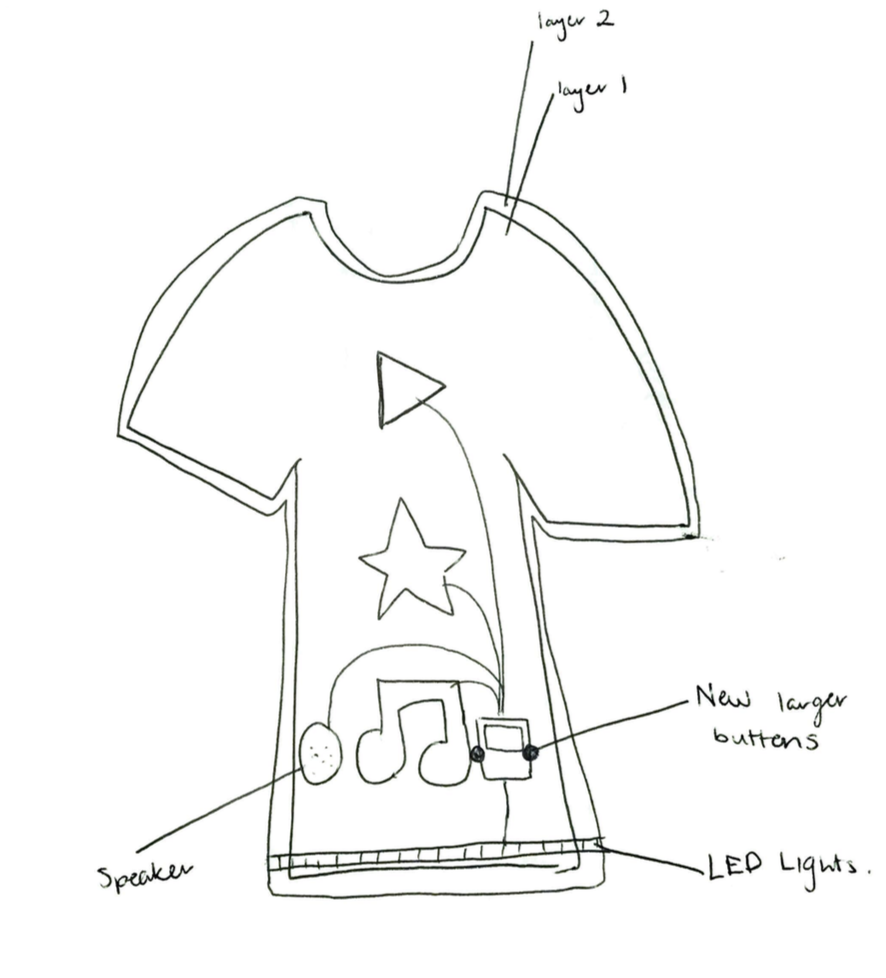 layer 2
layer 1
New larger
buttons
Speaker
LED Lights.